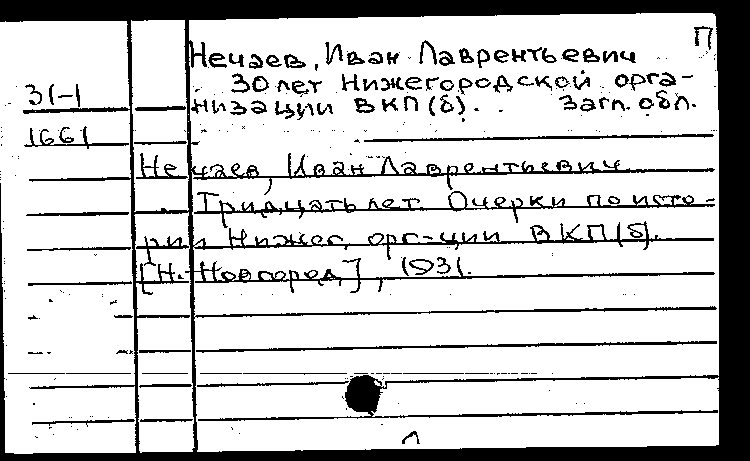 П
Нечаев, Иван Лаврентьевич
30 лет Нижегородской орга-
низации ВКП(б). . Загл. обл.
31-1
1661
Нечаев, Иван Лаврентьевич
Тридцать лет. Очерки по исто-
рии Нижег. орг-ции ВКП(б).
[Н.-Новгород], 1931.